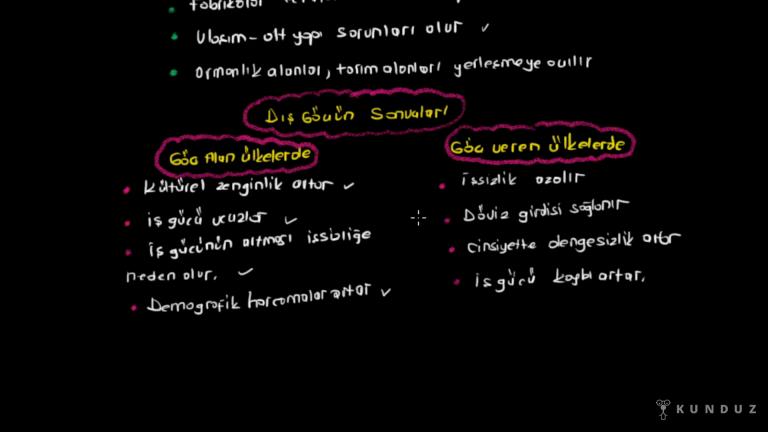 fabrikalar
ulaşım-alt yapı sorunları olur
ormanlık alanlar, tarım alanları yerleşmeye açılır
Dış Göçün Sonuçları
Göç Alan ülkelerde
Göç veren ülkelerde
kültürel zenginlik artar
iş gücü ucuzlar
iş gücünün artması işsizliğe
neden olur.
Demografik harcamalar artar
işsizlik azalır
Döviz girdisi sağlanır
cinsiyette dengesizlik artar
iş gücü kaybı artar.
KUNDUZ